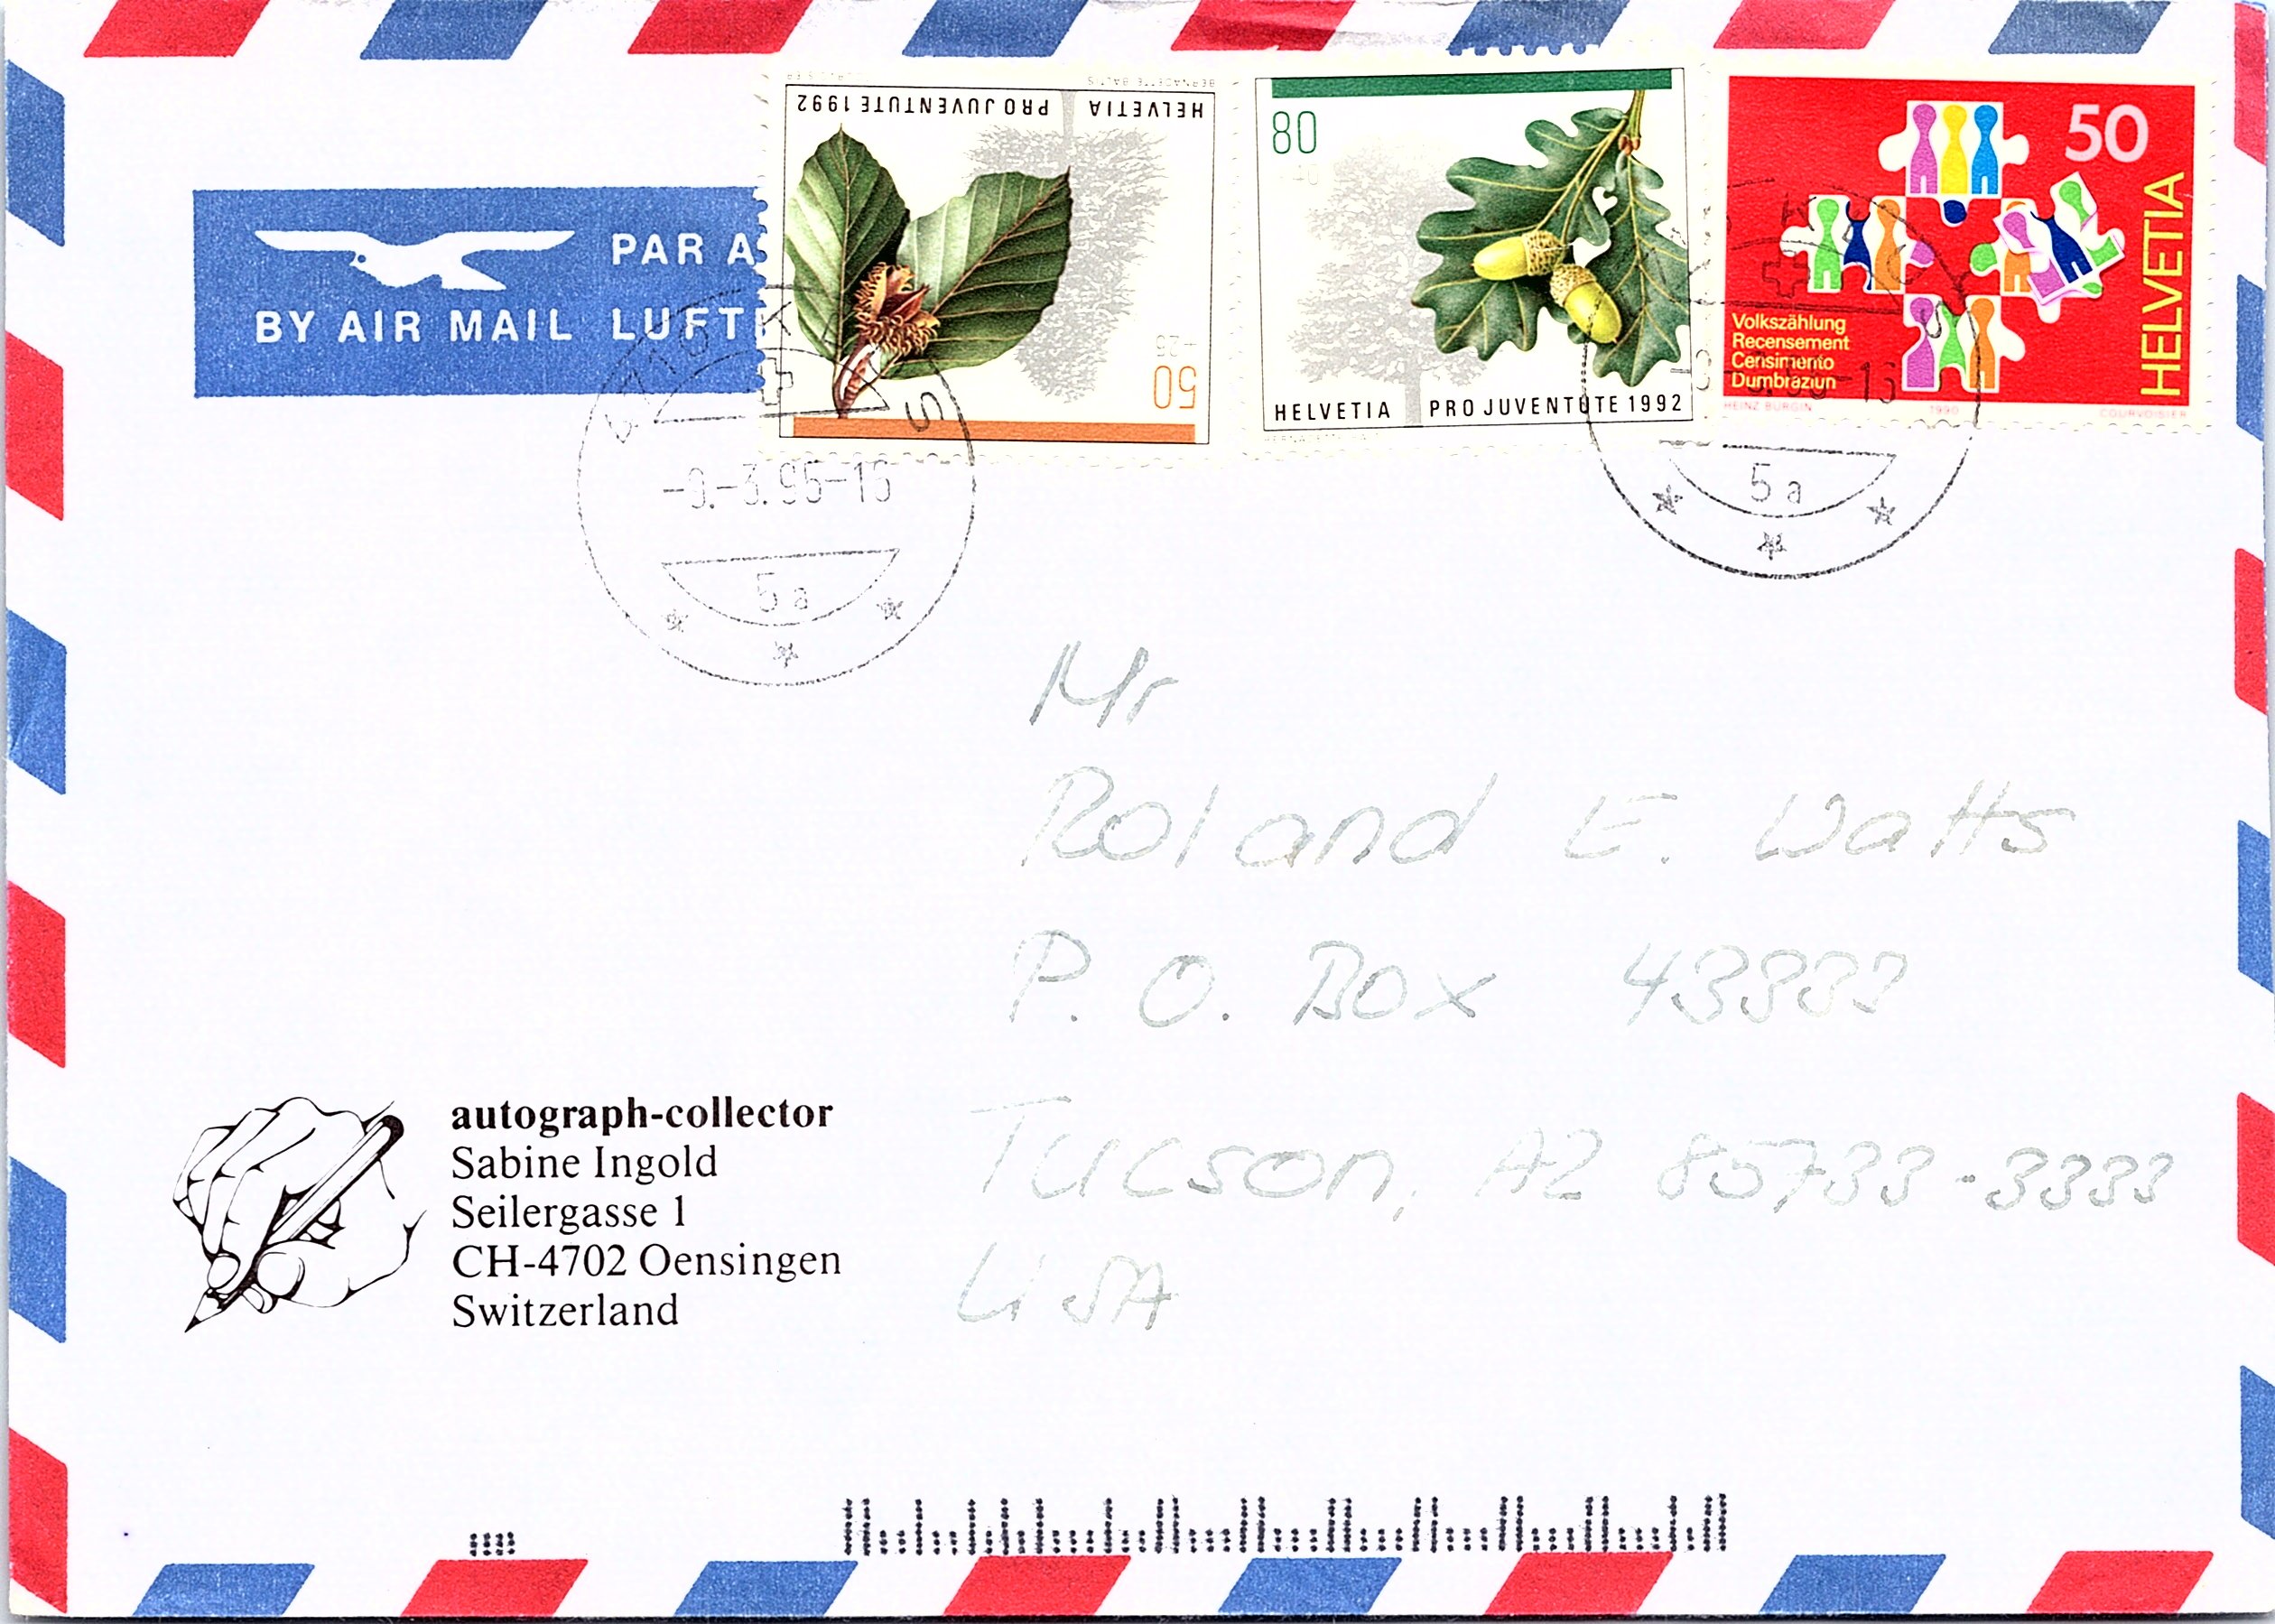 PAR A
BY AIR MAIL LUFT
HELVETIA PRO JUVENTUTE 1992
50
+25
80
HELVETIA PRO JUVENTUTE 1992
50
HELVETIA
Volkszählung
Recensement
Censimento
Dumbraziun
HEINZ BÜRGIN 1990 COURVOISIER
-9.-3.95-16
5a
5a
Mr
Roland E. Watts
P. O. Box 43333
Tucson, AZ 85733-3333
USA
autograph-collector
Sabine Ingold
Seilergasse 1
CH-4702 Oensingen
Switzerland